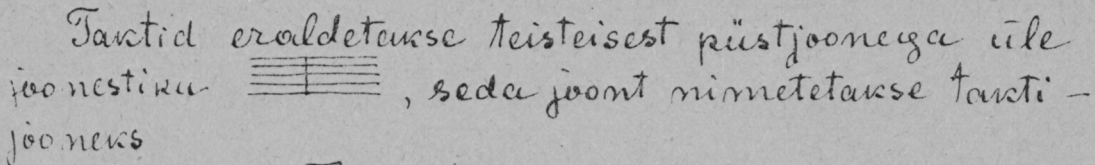 Taktid eraldetakse teisteisest püstjoonega üle
joonestiku , seda joont nimetetakse takti-
jooneks